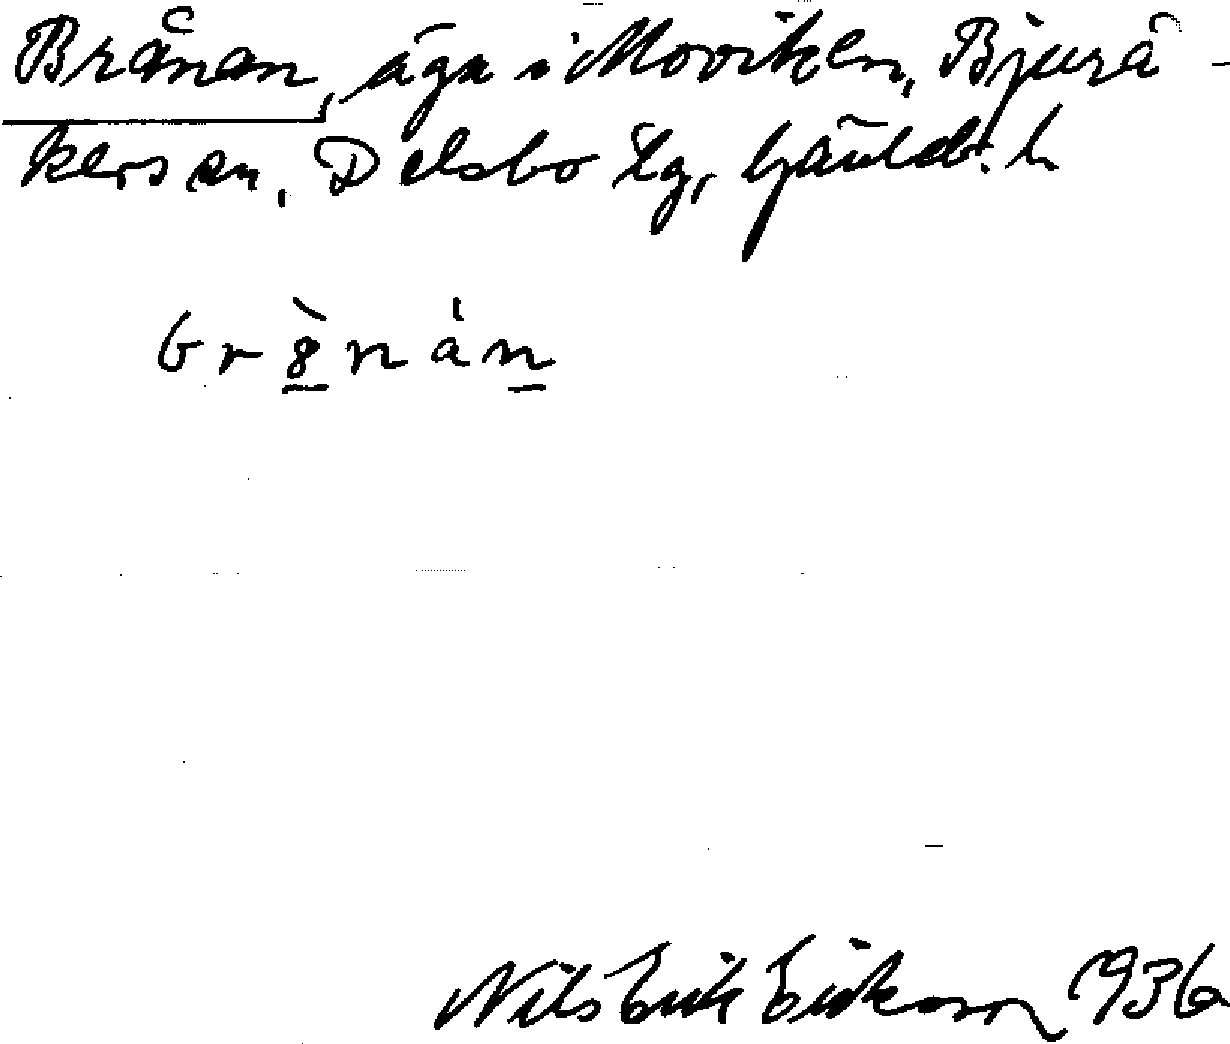 Brånan, äga i Moviken, Bjurå-
kers sn, Delsbo tg, Gävleb. l.
brànán
Nils Erik Eriksson 1936